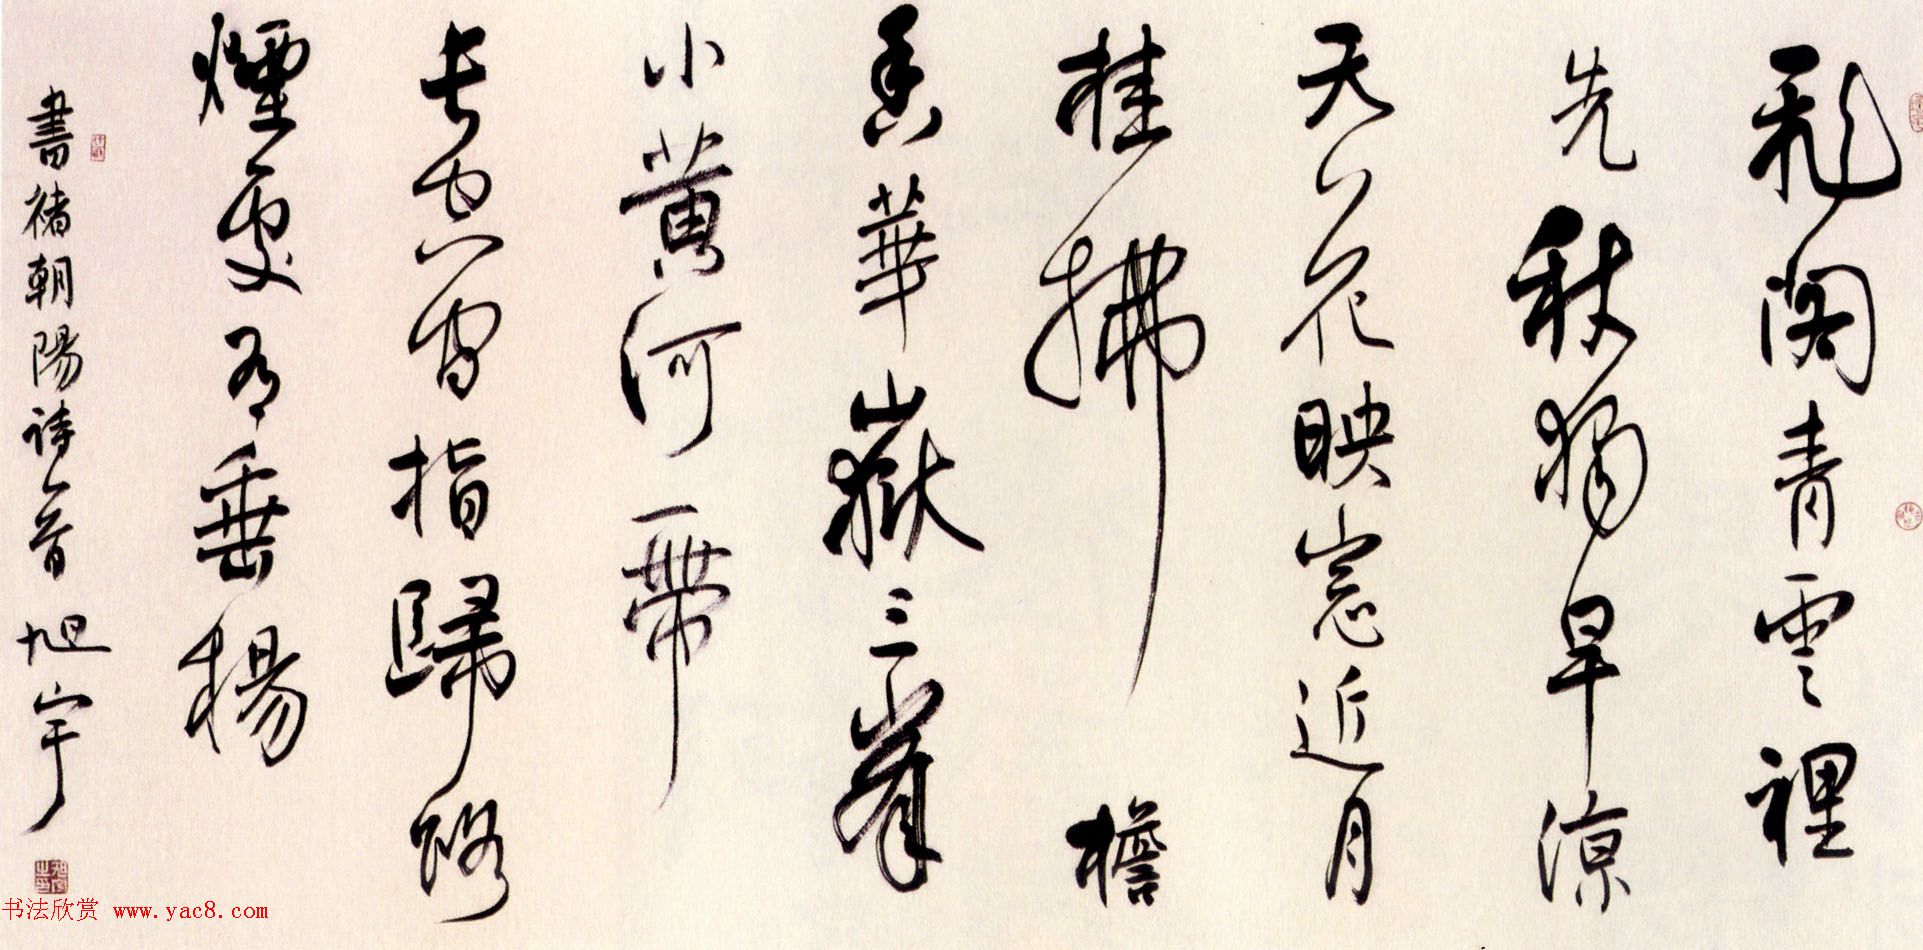 飛閣青雲裡
先秋獨早涼
天花映窻近月
桂拂檐
香華嶽三峯
小黃河一帶
長空間指歸路
煙處有垂楊
書褚朝陽詩一首 旭宇
书法欣赏 www.yac8.com